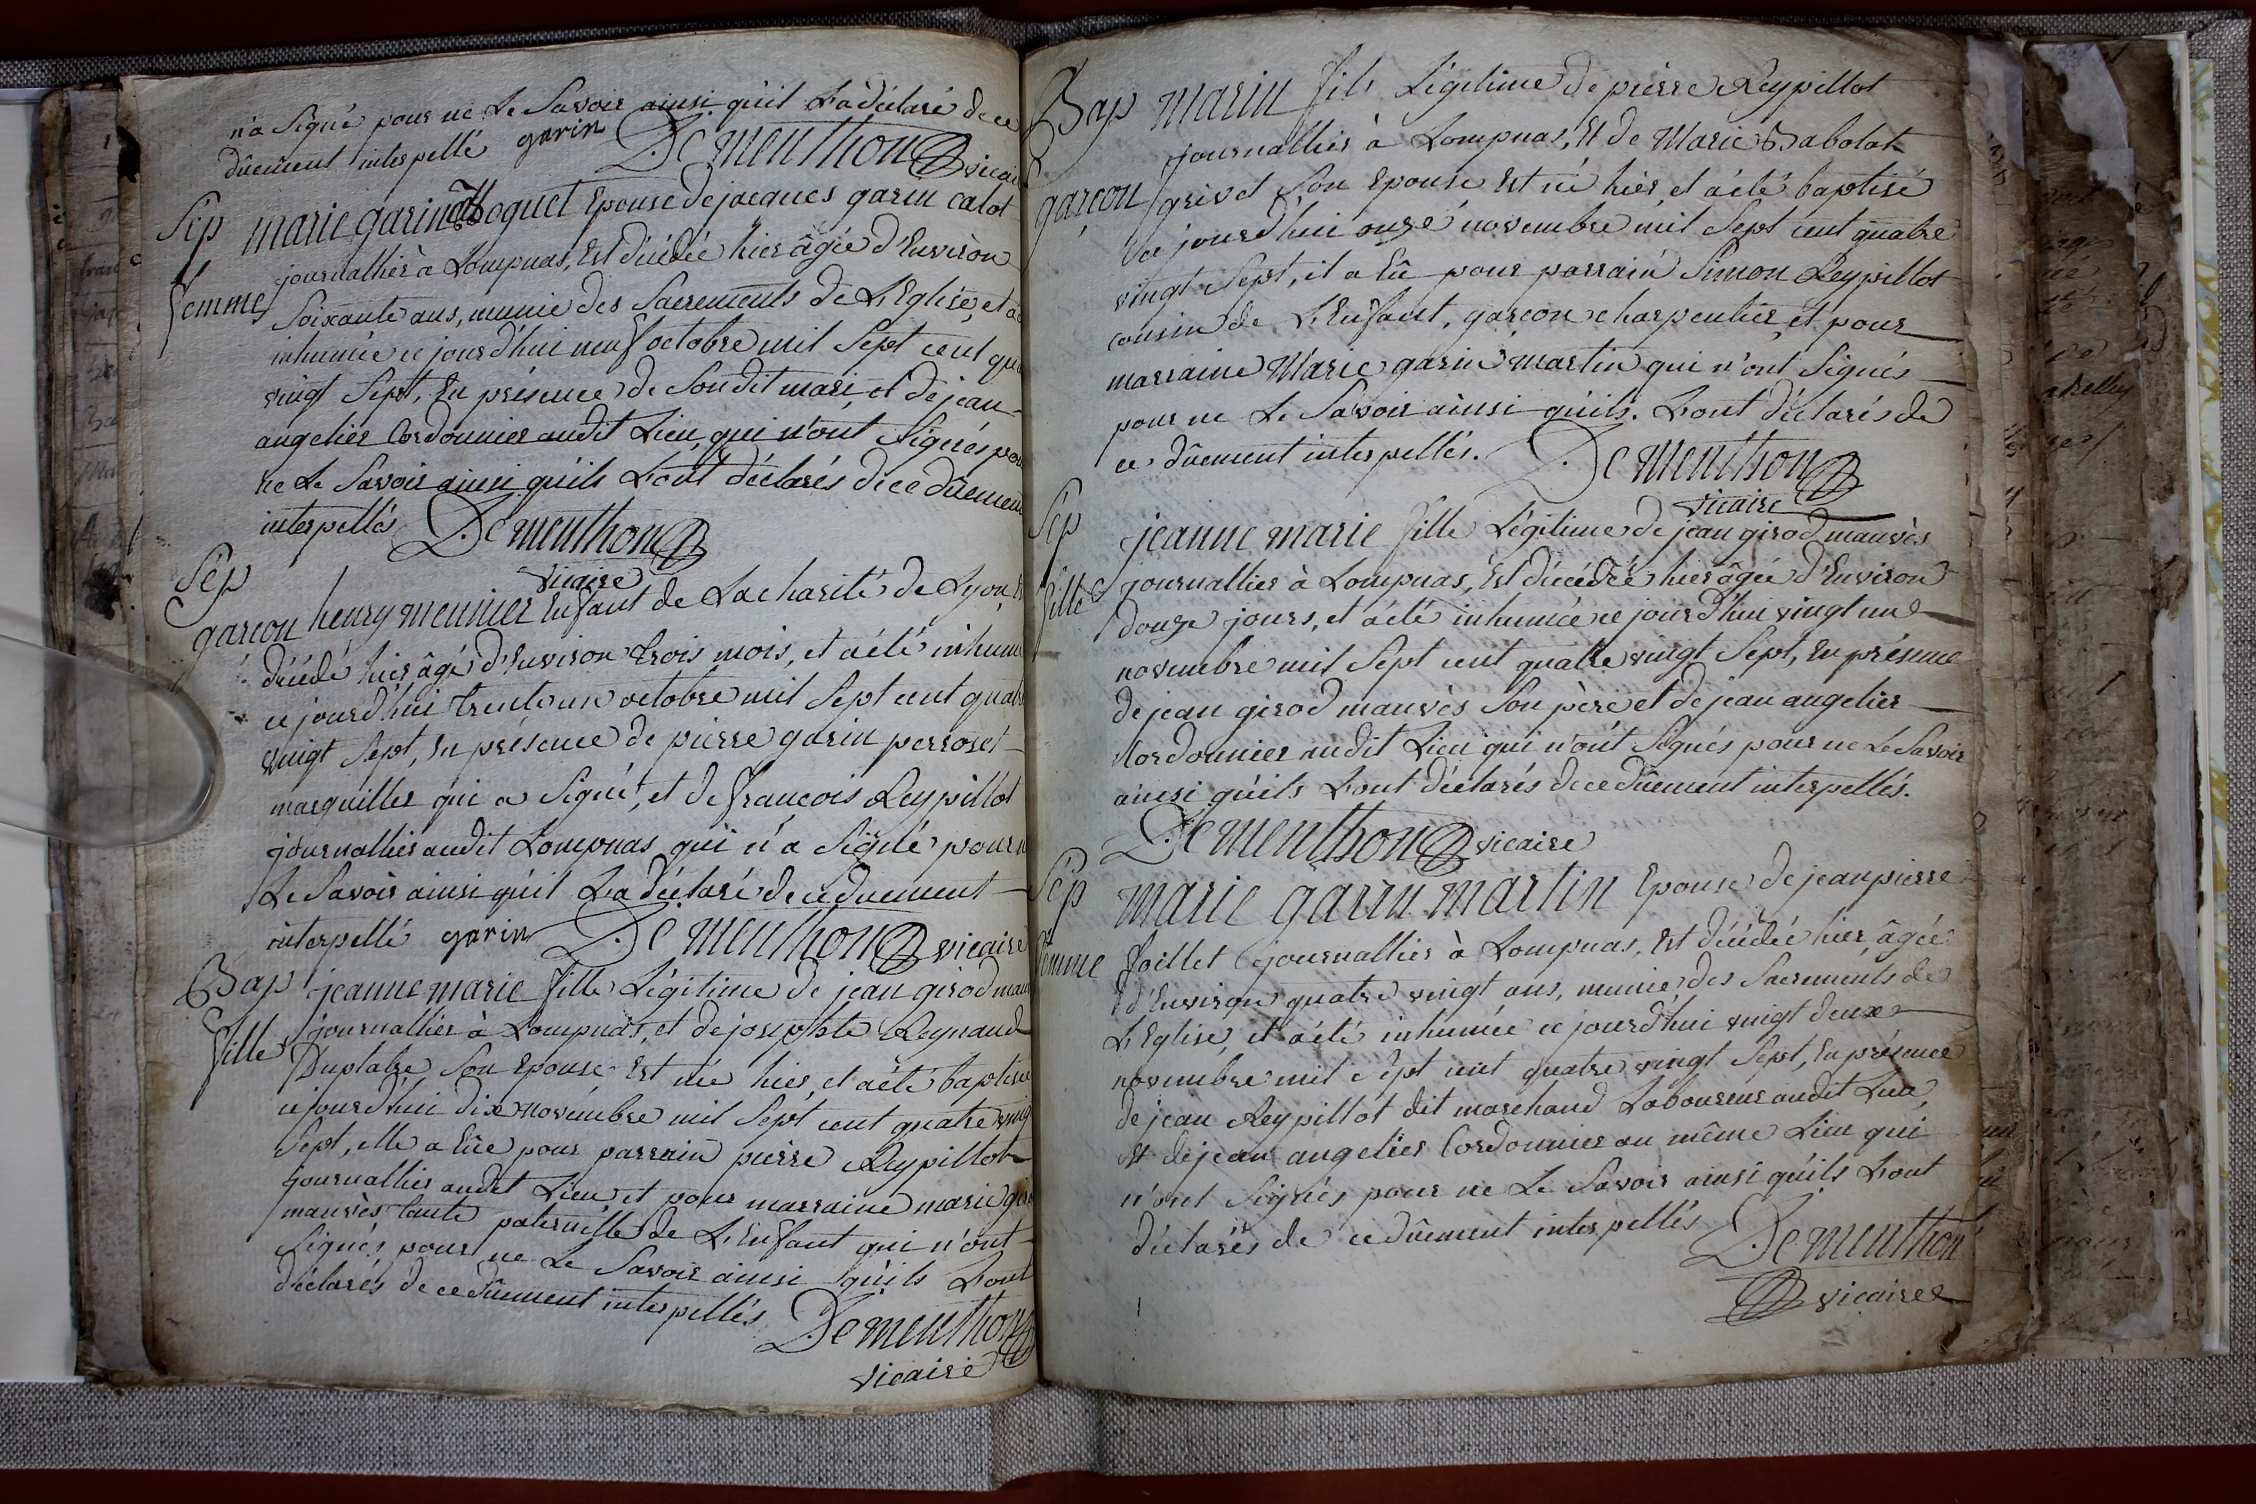 n'a signé pour ne le savoir ainsi qu'il l'a déclaré de ce
dûement interpellé garin Dementhon vicai
Sep marie garin Boquet Epouse de jacques garin calot
journallier à Lompnas, Est décédée hier âgée d'Environ
femme soixante ans, munie des sacrements de L'Eglise, et a
inhumée ce jourd'hui neuf octobre mil sept cent qua
vingt sept, En présence de son dit mari, et de jean
angelier Cordonnier audit Lieu qui n'ont signés pou
ne le savoir ainsi qu'ils L'ont déclarés de ce dûement
interpellés Dementhon
vicaire
Sep
garçon henry meunier Enfant de La charité de Lyon, Es
décédé hier âgé d'Environ trois mois, et a été inhum
ce jourd'hui trente un octobre mil sept cent quat
vingt sept, En présence de pierre garin perroset
marguiller qui a signé, et de françois Reypillot
journallier audit Lompnas qui n'a signé pour n
Le savoir ainsi qu'il L'a déclaré de ce duement
interpellé garin Dementhon vicaire
Bap jeanne marie fille Légitime de jean girod mau
journallier à Lompnas, et de josephte Reynaud
fille Duplatre son Epouse Est née hier, et a été baptisé
ce jourd'hui dix novembre mil sept cent quatre ving
sept, elle a Eüe pour parrain pierre Reypillot
journallier audit Lieu et pour marraine marie gir
mauvès tante paternelle de L'Enfant qui n'ont
signés pour ne Le savoir ainsi qu'ils L'ont
déclarés de ce dûement interpellés Dementhon
vicaire
Bap marin fils Légitime de pierre Reypillot
journallier à Lompnas, Et de Marie Babolat
garçon grivet son Epouse Est né hier, et a été baptisé
ce jourd'hui onze novembre mil sept cent quatre
vingt sept, il a Eû pour parrain Simon Reypillot
cousin de L'Enfant, garçon charpentier et pour
marraine Marie garin martin qui n'ont signés
pour ne Le savoir ainsi qu'ils L'ont déclarés de
ce dûement interpellés. Dementhon
vicaire
Sep jeanne marie fille Légitime de jean girod mauvès
fille journallier à Lompnas, Est décédée hier âgée d'Environ
douze jours, et a été inhumée ce jourd'hui vingt un
novembre mil sept cent quatre vingt sept, En présence
de jean girod mauvès son père et de jean angelier
Cordonnier audit Lieu qui n'ont signés pour ne Le savoir
ainsi qu'ils L'ont déclarés de ce dûement interpellés.
Dementhon vicaire
Sep marie garin martin Epouse de jean pierre
femme foillet journallier à Lompnas, Est décédée hier âgée
d'Environ quatre vingt ans, munie des sacrements de
L'Eglise, et a été inhumée ce jourd'hui vingt deux
novembre mil sept cent quatre vingt sept, En présence
de jean Reypillot dit marchand Laboureur audit Lieu,
Et de jean angelier Cordonnier au même Lieu qui
n'ont signés pour ne Le savoir ainsi qu'ils L'ont
déclarés de ce dûement interpellés Dementhon
vicaire